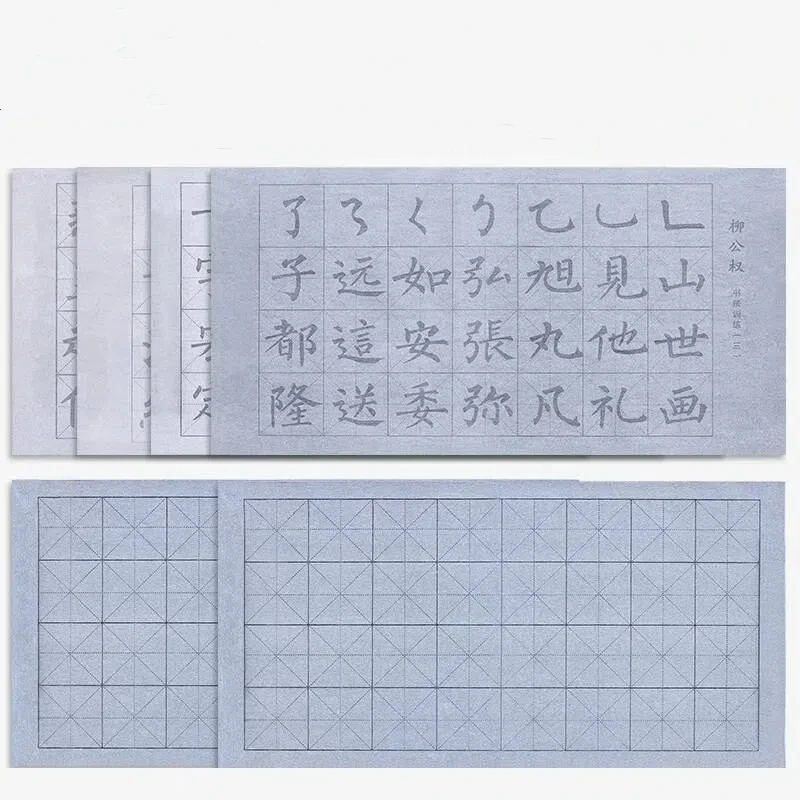 柳公权
书法训练(三)
𠃊山世画
乚見他礼
乙旭丸凡
ㄅ弘張弥
く如安委
ろ遠這送
了子都隆